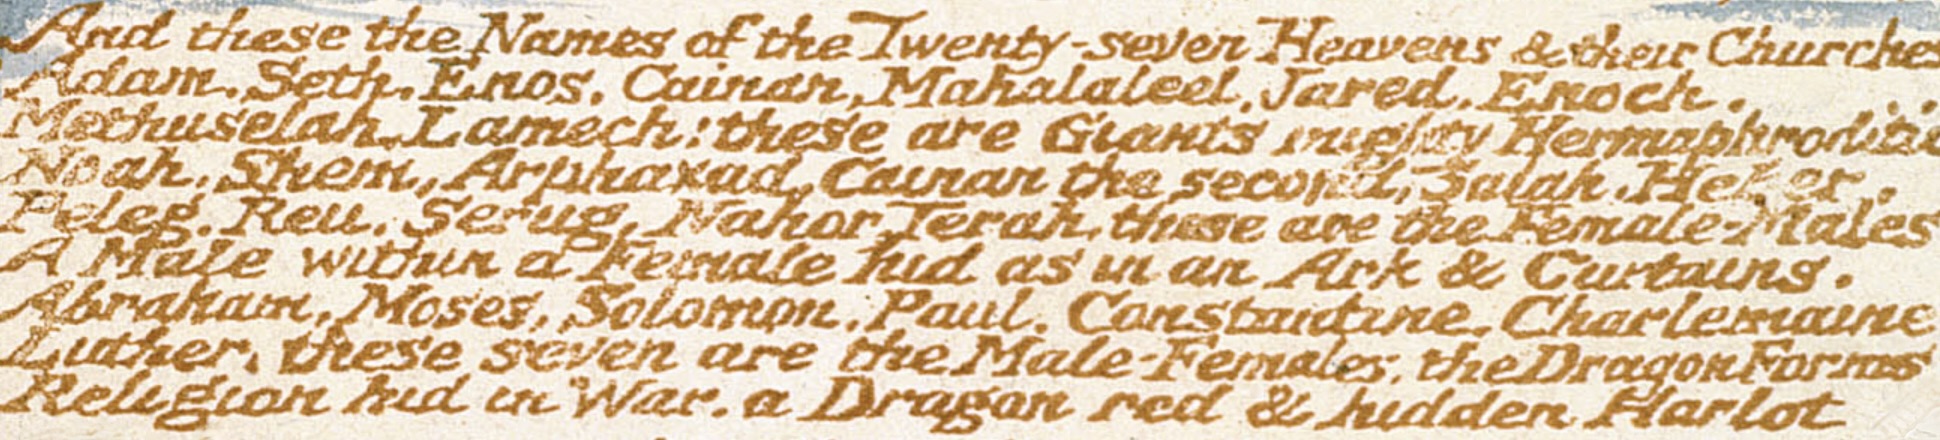 And these the Names of the Twenty-seven Heavens & their Churches
Adam. Seth. Enos. Cainan, Mahalaleel. Jared. Enoch.
Methuselah. Lamech: these are Giants mighty Hermaphroditic
Noah, Shem, Arphaxad, Cainan the second, Salah. Heber.
Peleg. Reu. Serug. Nahor. Terah, these are the Female-Males
A Male within a Female hid as in an Ark & Curtains.
Abraham, Moses, Solomon. Paul. Constantine. Charlemaine
Luther, these seven are the Male-Females, the Dragon Forms
Religion hid in War. a Dragon red & hidden Harlot